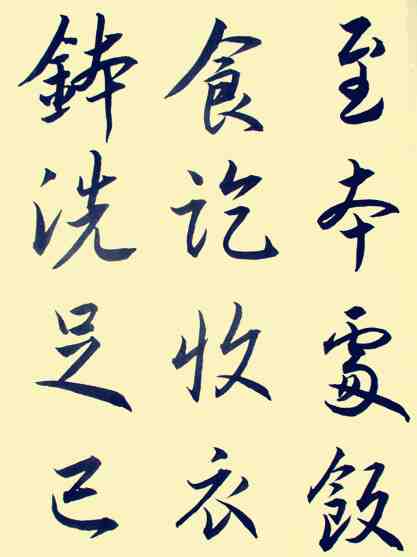 至本處飯
食訖收衣
鉢洗足已